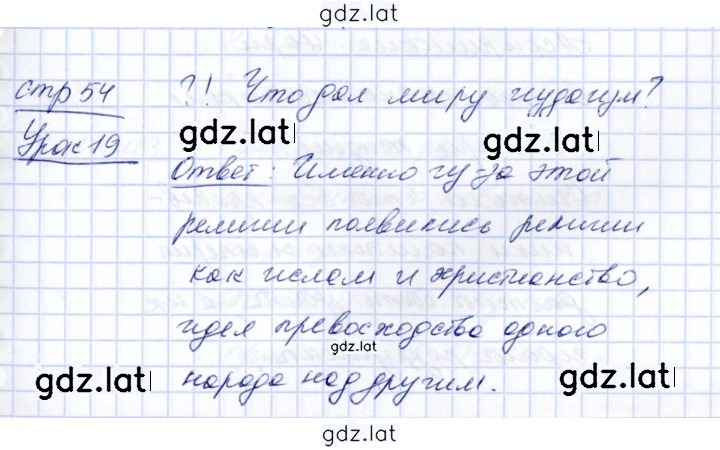 gdz.lat
стр 54 ?! Что дал миру иудаизм?
Урок 19
gdz.lat gdz.lat
Ответ: Именно из-за этой
религии появились религии
как ислам и христианство,
идея превосходства одного
gdz.lat
народа над другим.
gdz.lat gdz.lat
gdz.lat